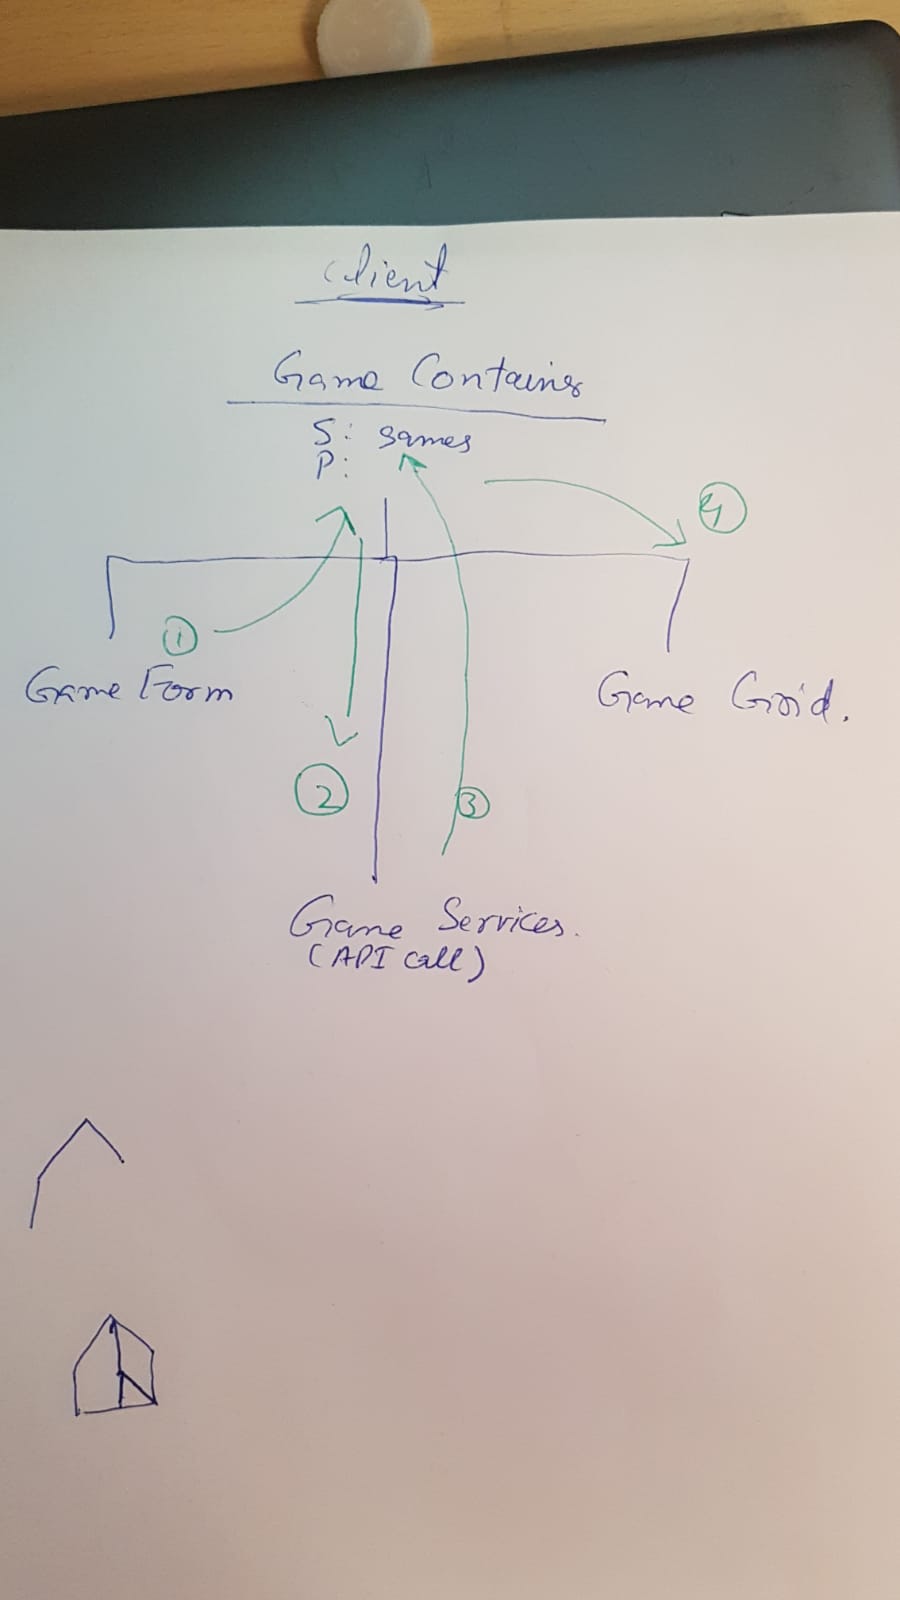 Client
Game Container
S: games
P:
4
1
Game Form
Game Grid.
2
3
Game Services.
(API call)